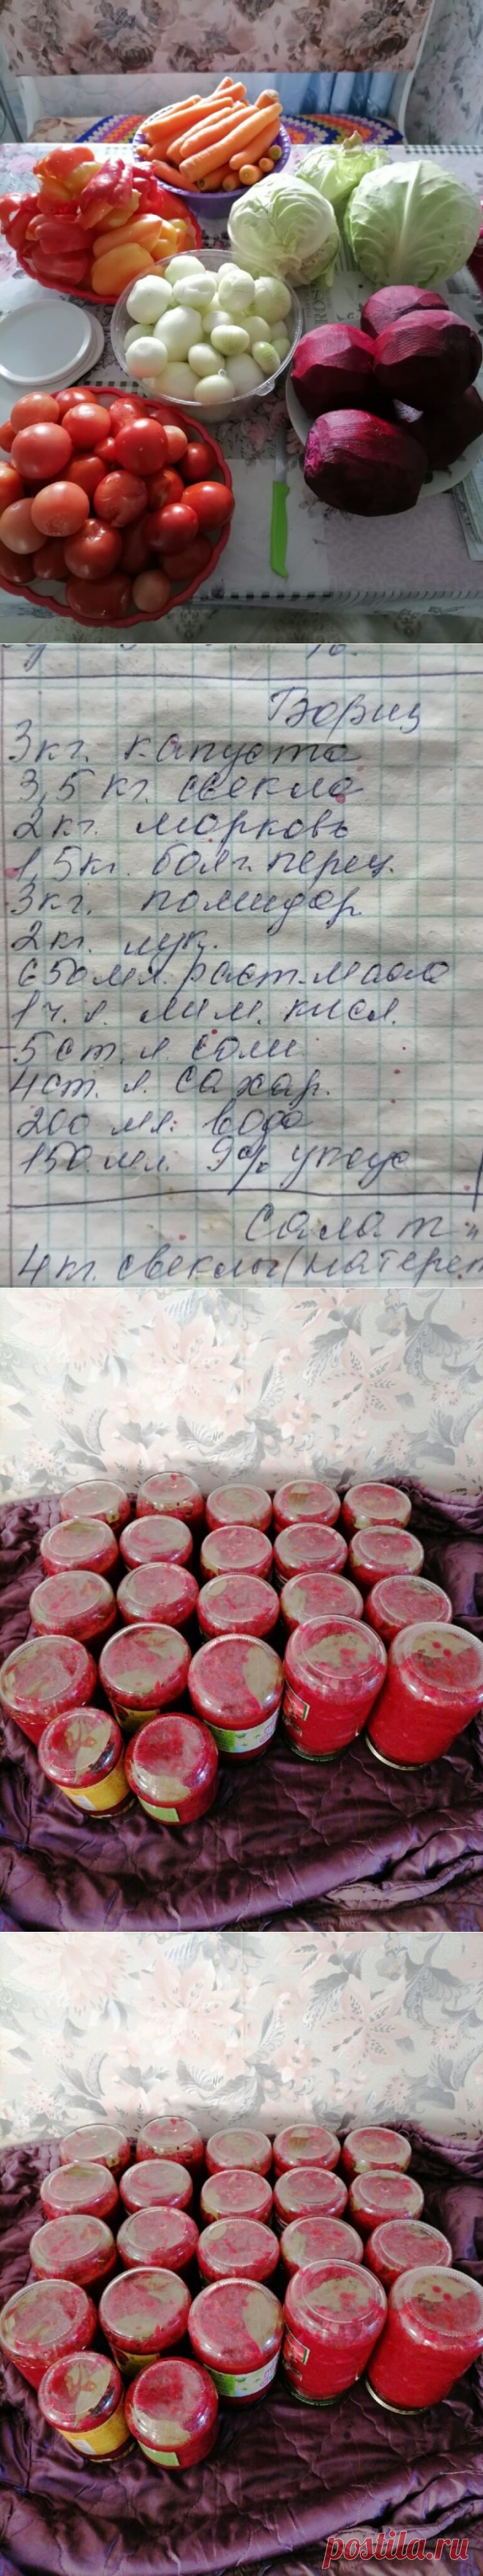 Борщ
3кг. капуста
3,5 кг. свекла
2кг. морковь
1,5кг. болг. перец.
3кг. помидор.
2кг. лук.
650мл. раст. масло
1 ч. л. лим. кисл.
5 ст. л. соли
4ст. л. сахар.
200 мл. вода
150 мл. 9% уксус
Салат "
4кг. свеклы (натерет
postila.ru